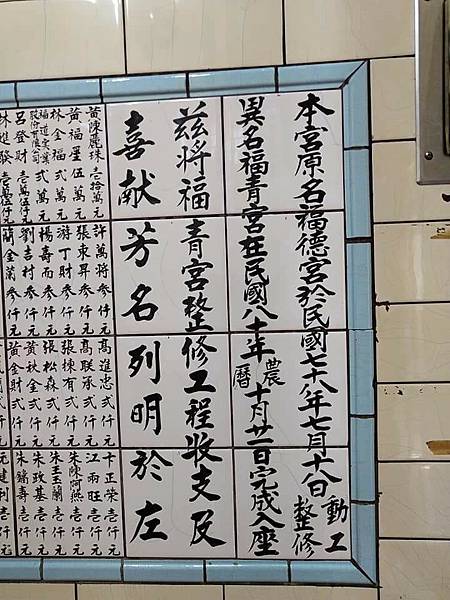 本宮原名福德宮於民國七十八年七月十八日動工整修
異名福青宮在民國八十年農曆十月廿一日完成入座
茲將福青宮整修工程收支及
喜献芳名列明於左
黃陳麗珠壱拾萬元
黃福星伍萬元
林金福弍萬元
呂登財壱萬伍仟元
許萬將參仟元
張東昇參仟元
游丁財參仟元
楊壽而參仟元
劉吉村參仟元
簡金蘭參仟元
高進忠弍仟元
高联承弍仟元
張楝有弍仟元
張松森弍仟元
黃秋金弍仟元
黃金財弍仟元
卞正榮壱仟元
江兩旺壱仟元
朱陳阿燕壱仟元
朱王玉蘭壱仟元
朱政基壱仟元
朱鏘壽壱仟元